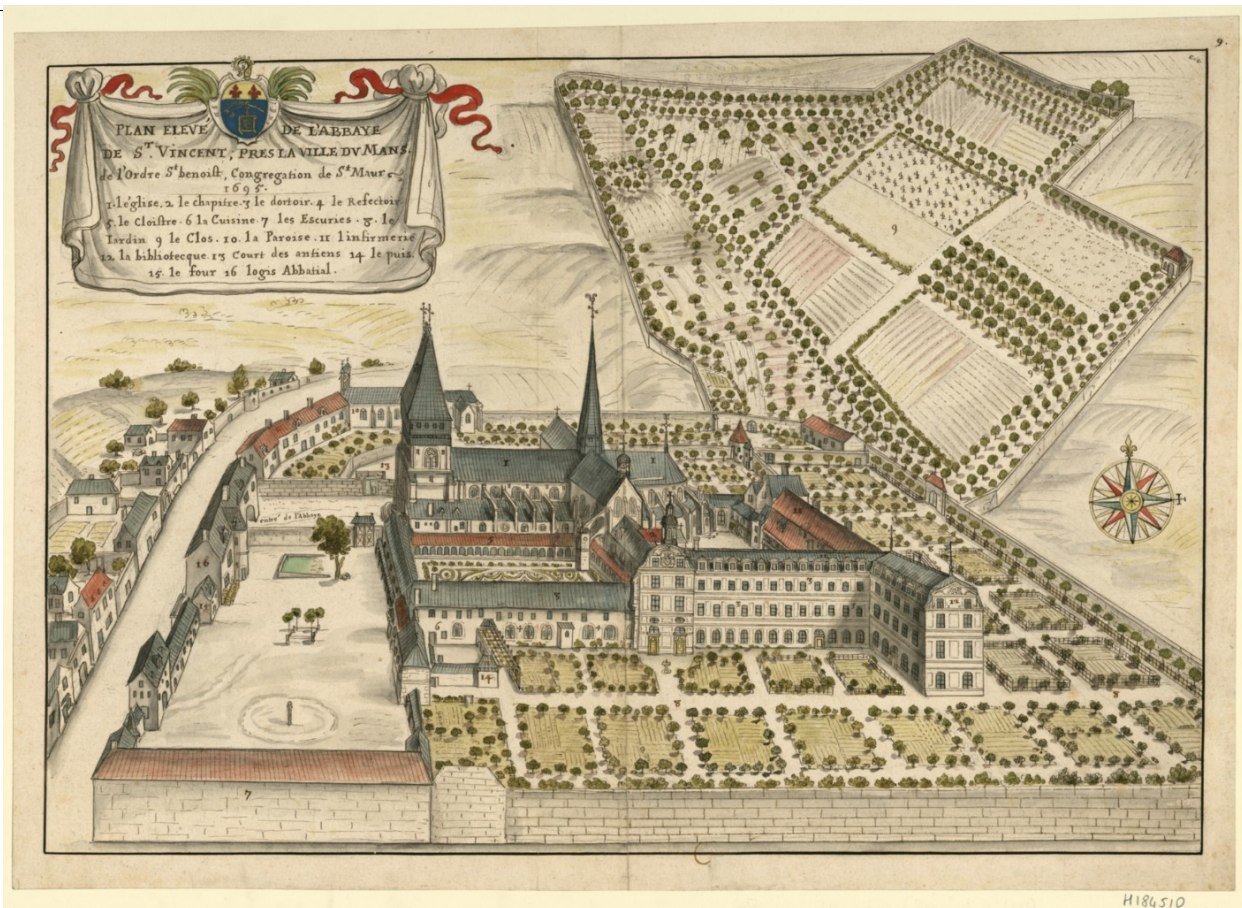 9.
PLAN ELEVÉ DE L'ABBAYE
DE S.T VINCENT, PRES LA VILLE DV MANS.
de l'Ordre S.t benoist, Congregation de S.t Maur
1695.
1. le'glise. 2 le chapitre. 3 le dortoir. 4 le Refectoir
5. le Cloistre. 6 la Cuisine. 7 les Escuries. 8. le
Iardin 9 le Clos. 10. la Paroise. 11 linfirmerie
12. la bibliotecque. 13 Court des antiens 14 le puis.
15. le four 16 logis Abbatial.
9
10
13
1
1
entreé de l'abbaye
5
16
3
2
12
6
4
14
8
8
7
H184510